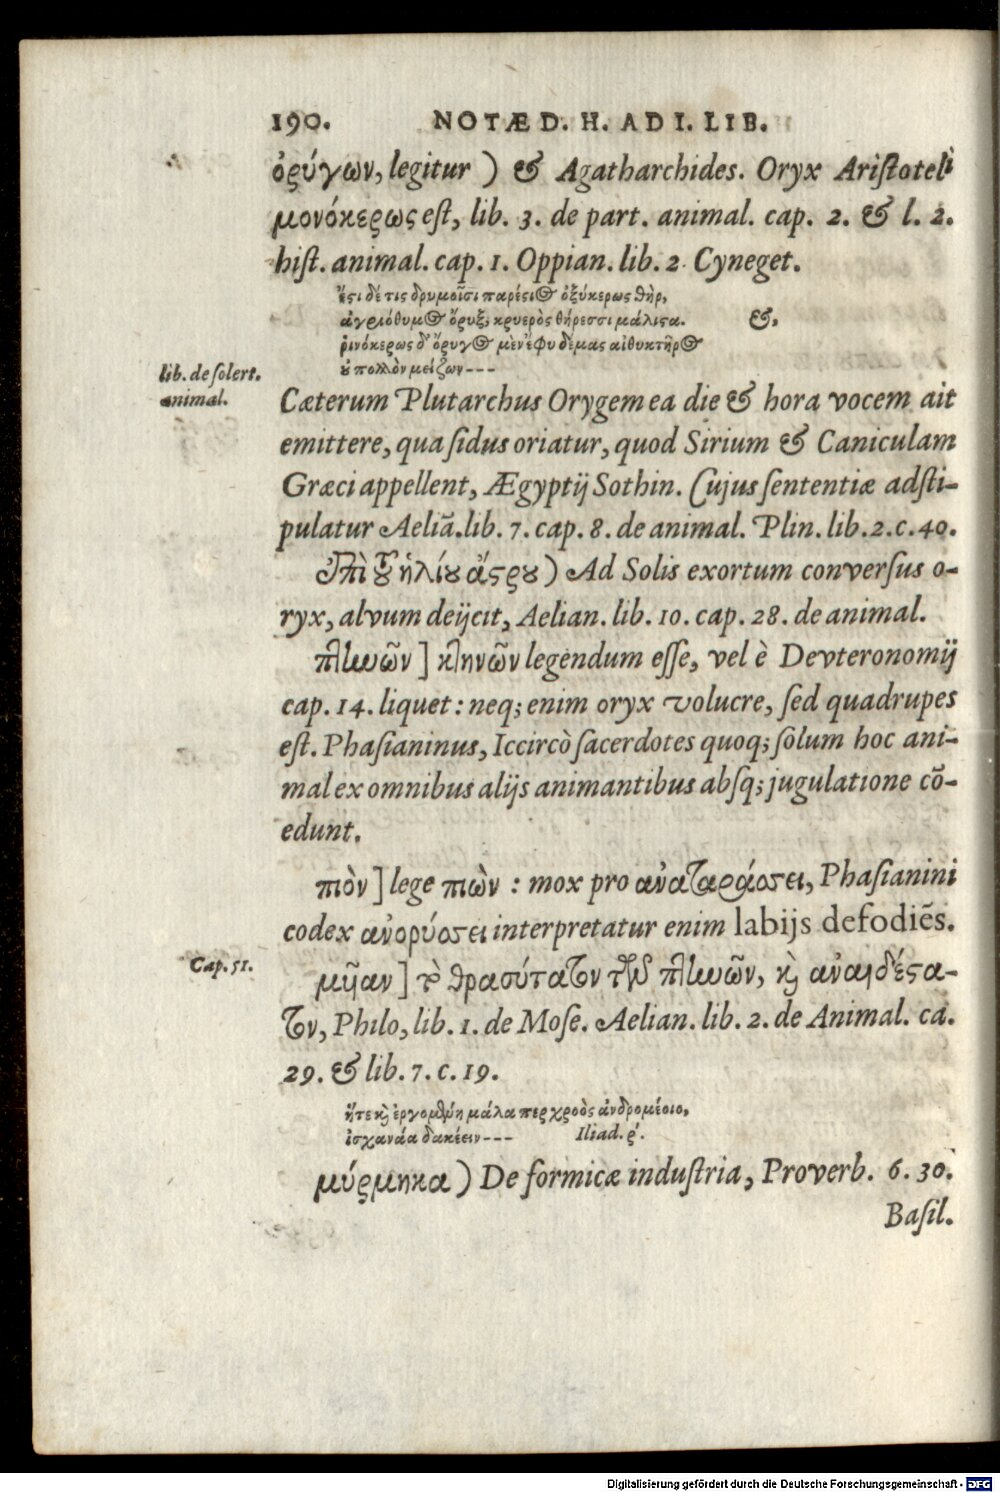 190. NOTÆ D. H. AD I. LIB.
ὀρύγων, legitur ) & Agatharchides. Oryx Aristoteli
μονόκερως est, lib. 3. de part. animal. cap. 2. & l. 2.
hist. animal. cap. 1. Oppian. lib. 2 Cyneget.
ἔστι δέ τις δρυμοῖσι παρέστιος ὀξύκερως θὴρ,
ἀγριόθυμος ὄρυξ, κρυερὸς θήρεσσι μάλιστα. &,
ῥινόκερως δ' ὄρυγος μὲν ἔφυ δέμας αἰθυκτῆρος
οὐ πολλὸν μείζων---
lib. de solert.
animal.
Cæterum Plutarchus Orygem ea die & hora vocem ait
emittere, qua sidus oriatur, quod Sirium & Caniculam
Græci appellent, Ægyptij Sothin. Cujus sententiæ adsti-
pulatur Aeliā. lib. 7. cap. 8. de animal. Plin. lib. 2. c. 40.
Ἐπὶ τοῦ ἡλίου ἄστρου ) Ad Solis exortum conversus o-
ryx, alvum deijcit, Aelian. lib. 10. cap. 28. de animal.
πτηνῶν ] κτηνῶν legendum esse, vel è Deuteronomij
cap. 14. liquet: neq; enim oryx volucre, sed quadrupes
est. Phasianinus, Iccircò sacerdotes quoq; solum hoc ani-
mal ex omnibus alijs animantibus absq; jugulatione cō-
edunt.
πιὸν ] lege πιὼν : mox pro ἀναταράσσει, Phasianini
codex ἀνορύσσει interpretatur enim labijs defodiēs.
Cap. 51.
μῦιαν ] τὸ θρασύτατον τῶν πτηνῶν, καὶ ἀναιδέστα-
τον, Philo, lib. 1. de Mose. Aelian. lib. 2. de Animal. ca.
29. & lib. 7. c. 19.
ἥτε καὶ ἐργομθμύη μάλα περ χροὸς ἀνδρομέοιο,
ἰσχανάα δακέειν--- Iliad. ρ'.
μύρμηκα ) De formicæ industria, Proverb. 6. 30.
Basil.
Digitalisierung gefördert durch die Deutsche Forschungsgemeinschaft - DFG